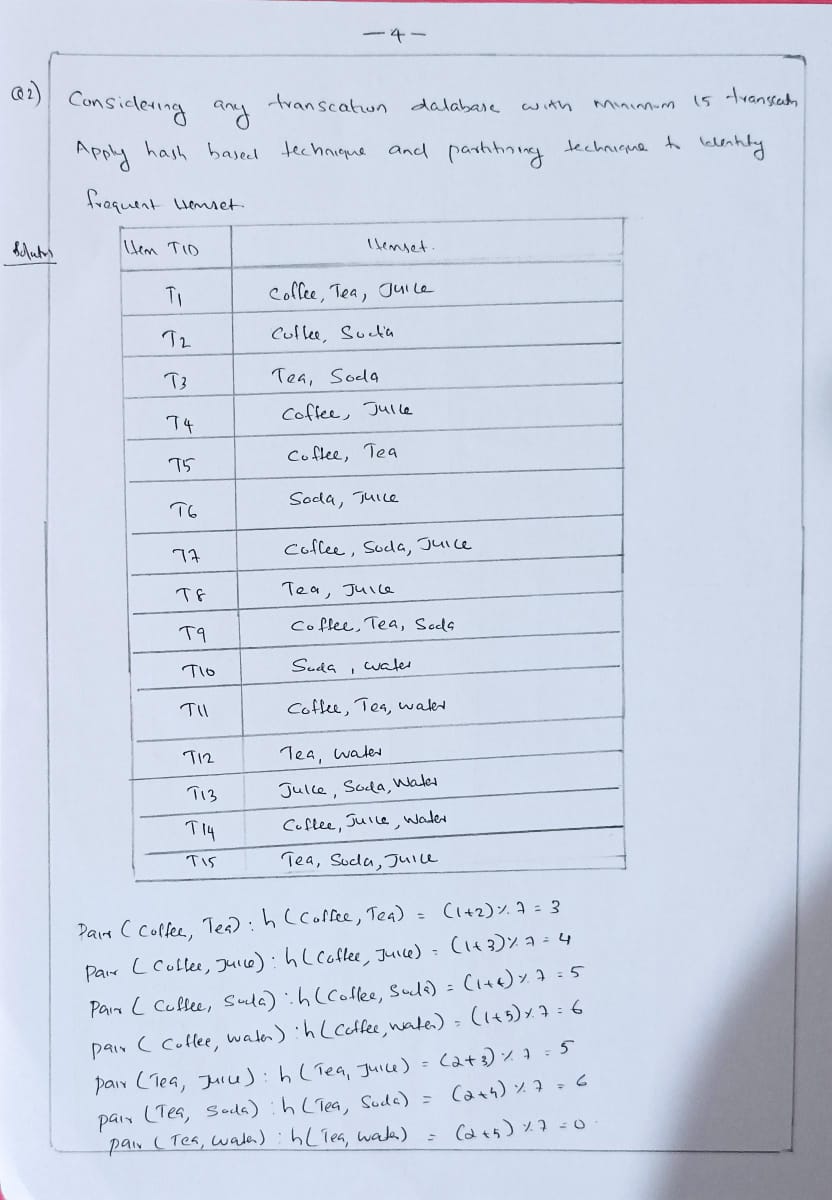 - 4 -
Q2) Considering any transcation database with minimum 15
Apply hash based technique and partitioning technique to identify
frequent itemset.
Item TID Itemset.
T1 Coffee, Tea, Juice
T2 Coffee, Soda
T3 Tea, Soda
T4 Coffee, Juice
T5 Coffee, Tea
T6 Soda, Juice
T7 Coffee, Soda, Juice
T8 Tea, Juice
T9 Coffee, Tea, Soda
T10 Soda, water
T11 Coffee, Tea, water
T12 Tea, water
T13 Juice, Soda, Water
T14 Coffee, Juice, Water
T15 Tea, Soda, Juice
Pair (Coffee, Tea) : h (Coffee, Tea) = (1+2) % 7 = 3
Pair (Coffee, Juice) : h (Coffee, Juice) = (1+3) % 7 = 4
Pair (Coffee, Soda) : h (Coffee, Soda) = (1+4) % 7 = 5
pair (Coffee, water) : h (Coffee, water) = (1+5) % 7 = 6
pair (Tea, Juice) : h (Tea, Juice) = (2+3) % 7 = 5
pair (Tea, Soda) : h (Tea, Soda) = (2+4) % 7 = 6
pair (Tea, water) : h (Tea, water) = (2+5) % 7 = 0